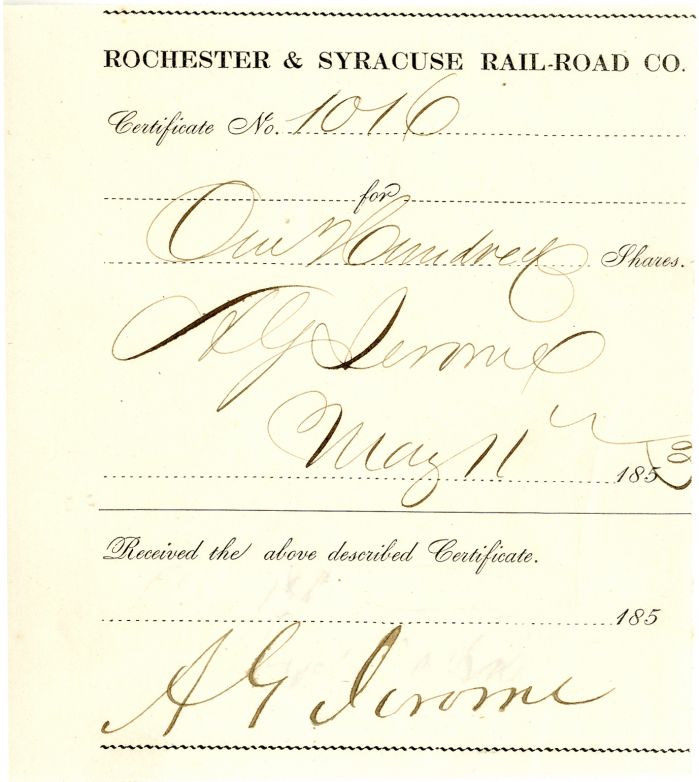 ROCHESTER & SYRACUSE RAIL-ROAD CO.
Certificate No. 1016
for
One Hundred Shares.
A G Jerome
May 11 185
Received the above described Certificate.
185
A G Jerome